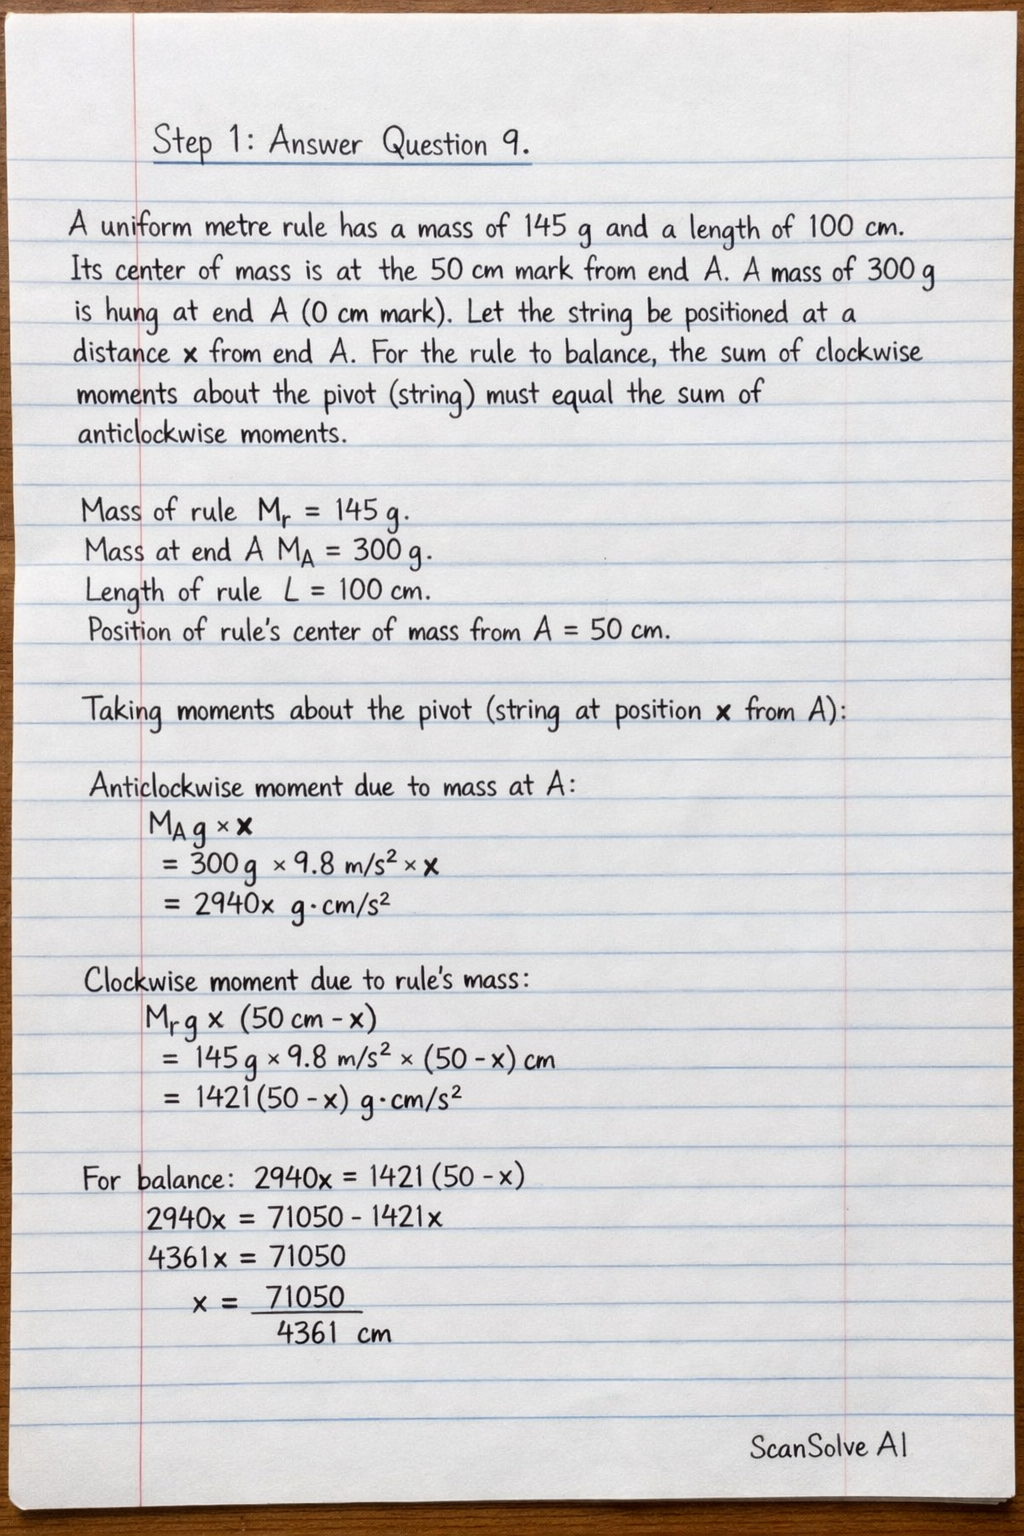 Step 1: Answer Question 9.
A uniform metre rule has a mass of 145 g and a length of 100 cm.
Its center of mass is at the 50 cm mark from end A. A mass of 300 g
is hung at end A (0 cm mark). Let the string be positioned at a
distance x from end A. For the rule to balance, the sum of clockwise
moments about the pivot (string) must equal the sum of
anticlockwise moments.
Mass of rule Mᵣ = 145 g.
Mass at end A M_A = 300 g.
Length of rule L = 100 cm.
Position of rule's center of mass from A = 50 cm.
Taking moments about the pivot (string at position x from A):
Anticlockwise moment due to mass at A:
M_A g × x
= 300 g × 9.8 m/s² × x
= 2940x g·cm/s²
Clockwise moment due to rule's mass:
Mᵣ g × (50 cm - x)
= 145 g × 9.8 m/s² × (50 - x) cm
= 1421(50 - x) g·cm/s²
For balance: 2940x = 1421(50 - x)
2940x = 71050 - 1421x
4361x = 71050
x = 71050
4361 cm
ScanSolve AI